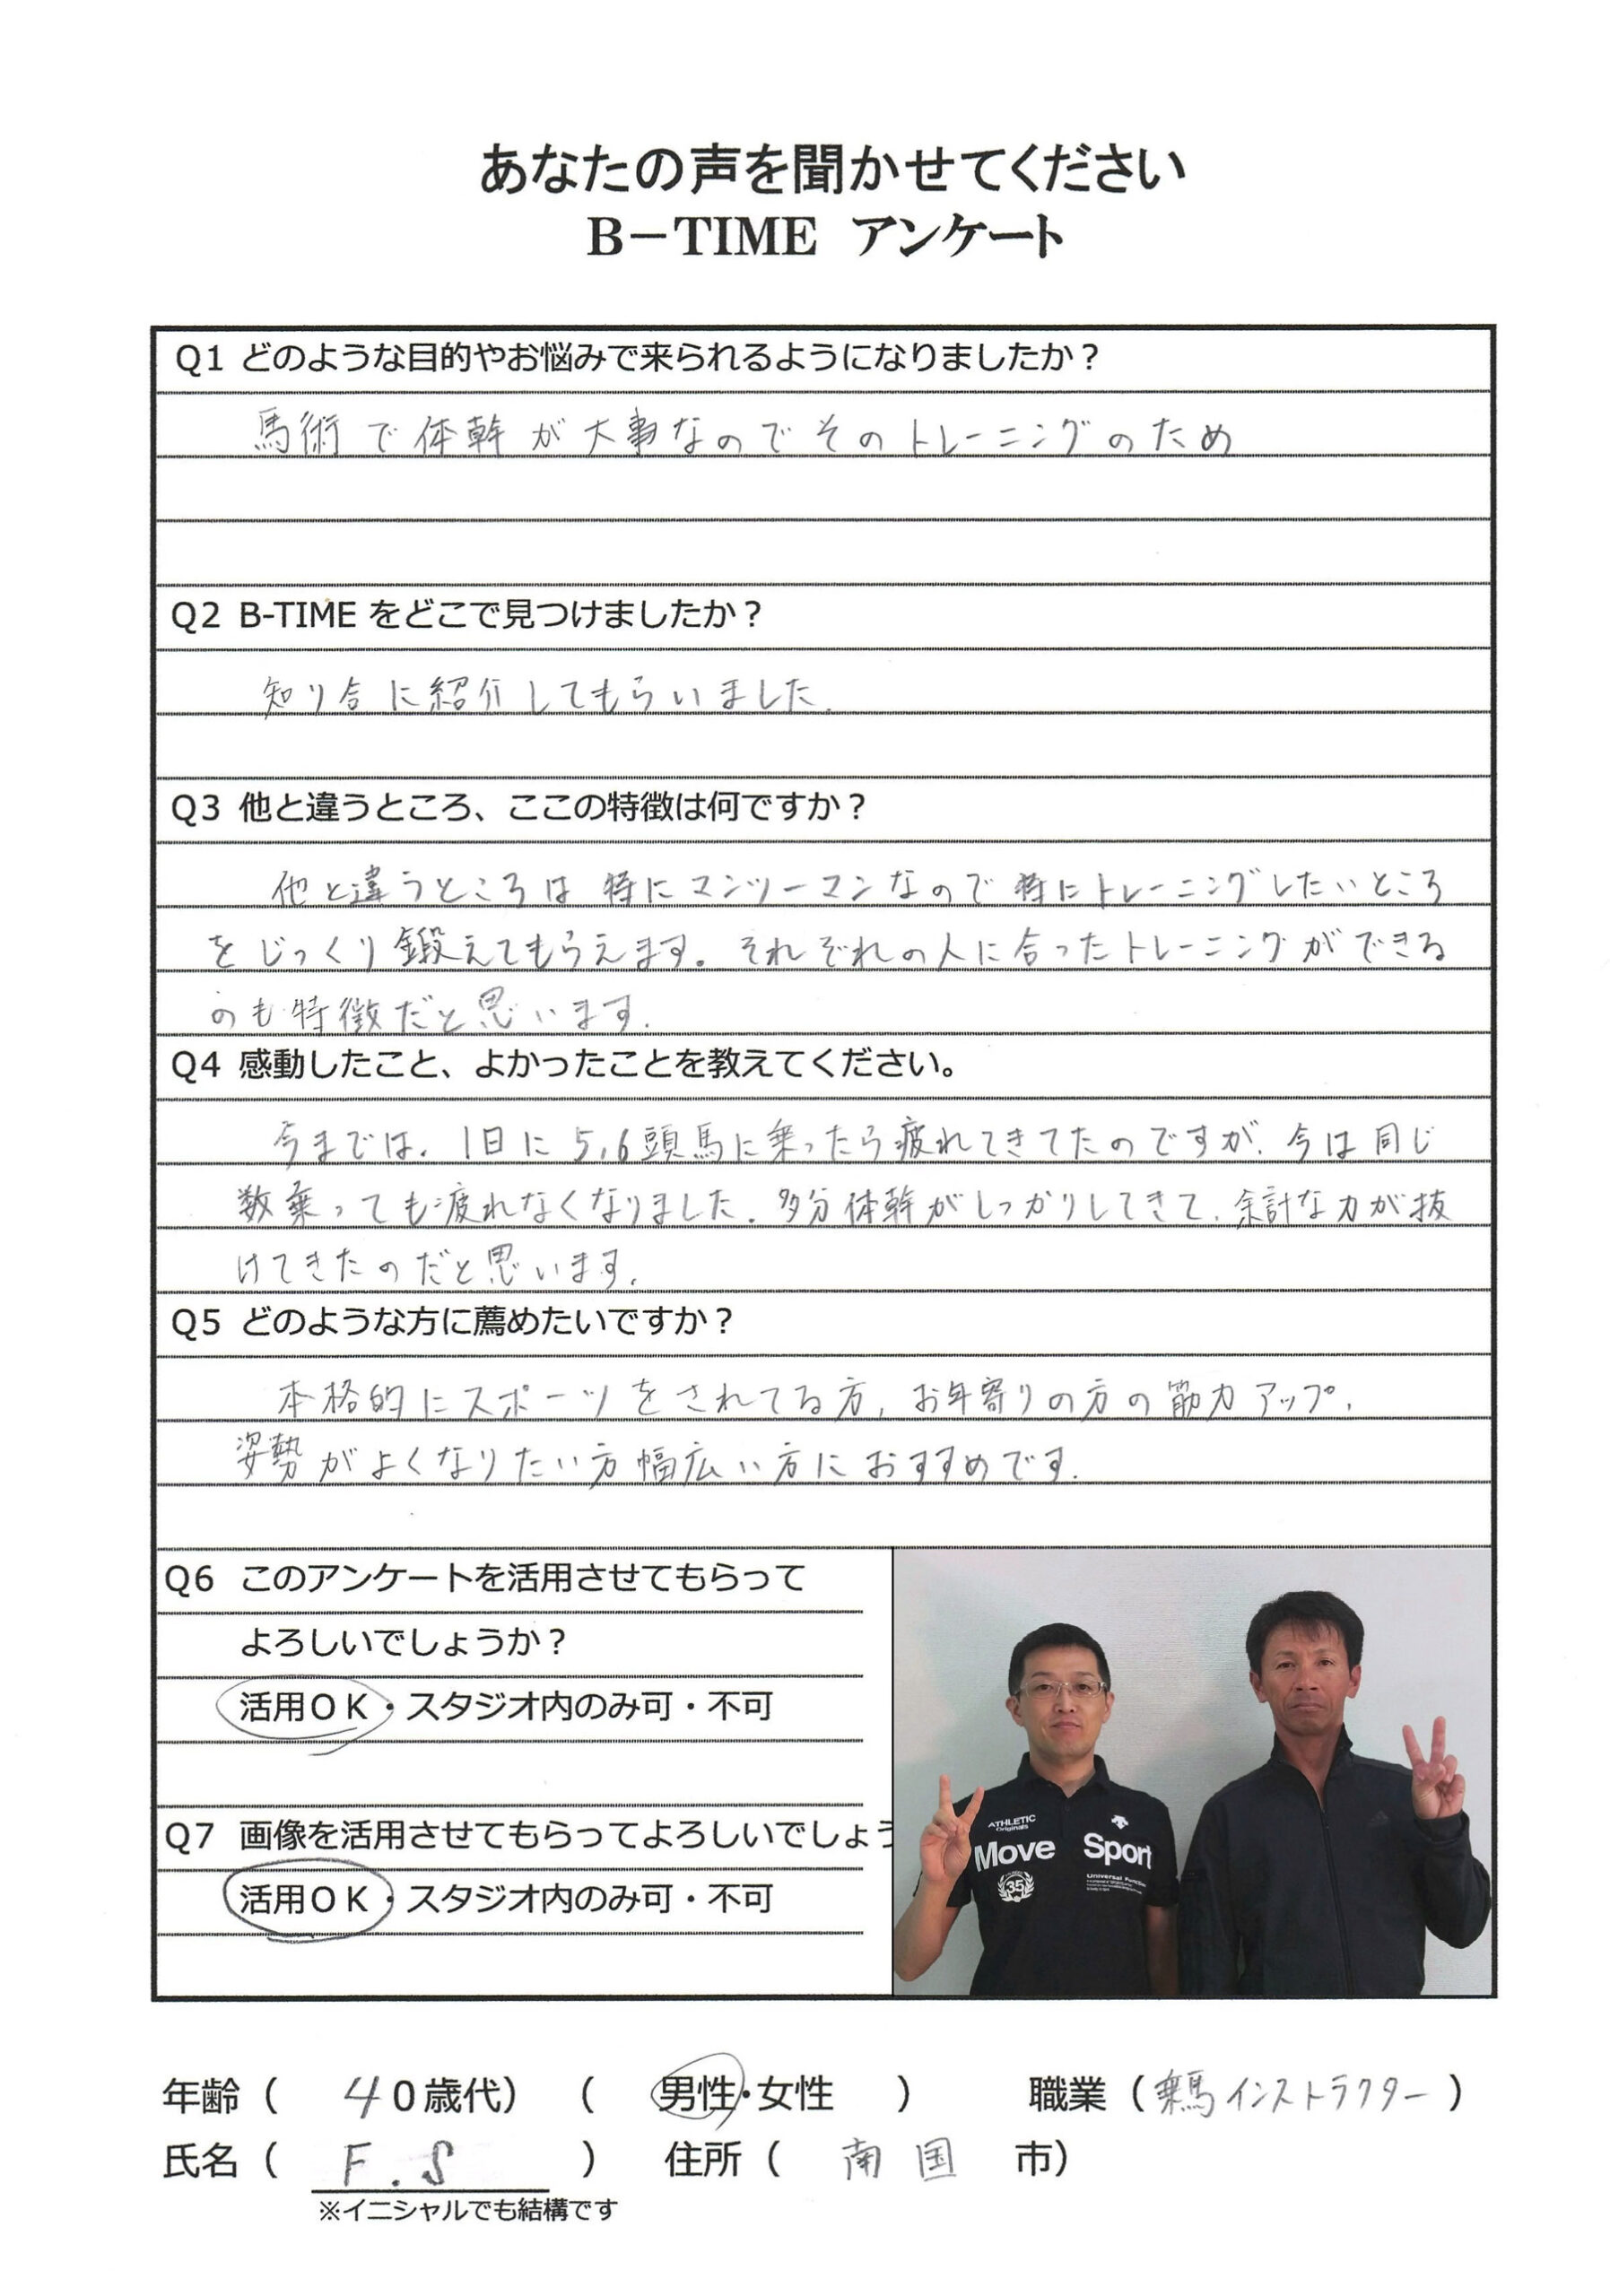 あなたの声を聞かせてください
B－TIME アンケート
Q1 どのような目的やお悩みで来られるようになりましたか？
馬術で体幹が大事なのでそのトレーニングのため
Q2 B-TIME をどこで見つけましたか？
知り合に紹介してもらいました。
Q3 他と違うところ、ここの特徴は何ですか？
他と違うところは特にマンツーマンなので特にトレーニングしたいところ
をじっくり鍛えてもらえます。それぞれの人に合ったトレーニングができる
のも特徴だと思います。
Q4 感動したこと、よかったことを教えてください。
今までは、1日に5,6頭馬に乗ったら疲れてきてたのですが、今は同じ
数乗っても疲れなくなりました。多分体幹がしっかりしてきて、余計な力が抜
けてきたのだと思います。
Q5 どのような方に薦めたいですか？
本格的にスポーツをされてる方、お年寄りの方の筋力アップ、
姿勢がよくなりたい方幅広い方におすすめです。
Q6 このアンケートを活用させてもらって
よろしいでしょうか？
活用ＯＫ・スタジオ内のみ可・不可
Q7 画像を活用させてもらってよろしいでしょう
活用ＯＫ・スタジオ内のみ可・不可
ATHLETIC
Originals
Move Sport
35
年齢（ 40歳代）（ 男性・女性 ） 職業（乗馬インストラクター）
氏名（ F.S ） 住所（ 南国 市）
※イニシャルでも結構です